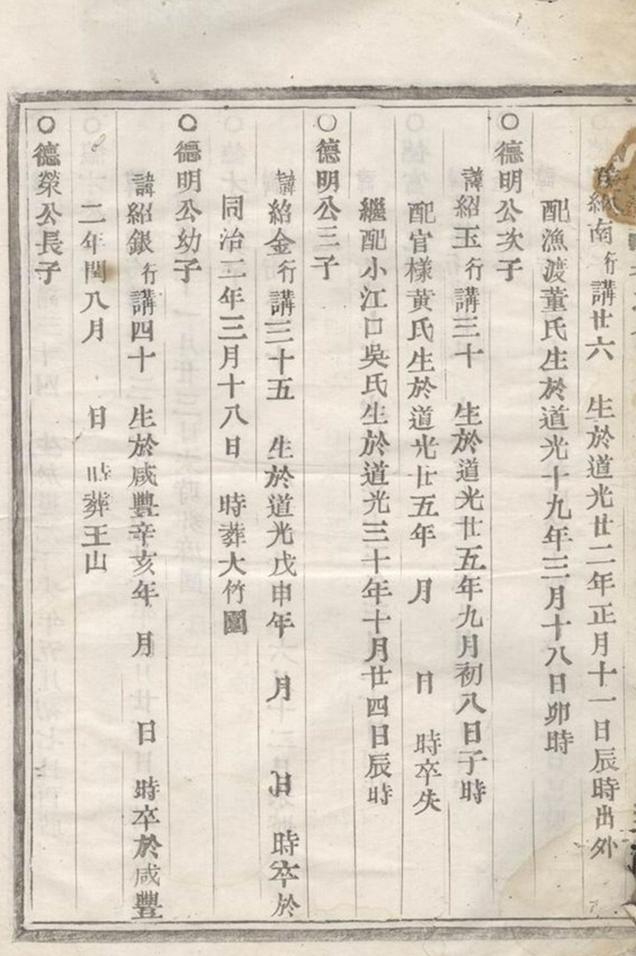 諱紹南行講廿六　生於道光廿二年正月十一日辰時出外
配漁渡董氏生於道光十九年三月十八日卯時
○德明公次子
諱紹玉行講三十　生於道光廿五年九月初八日子時
配官樣黃氏生於道光廿五年　月　日　時卒失
繼配小江口吳氏生於道光三十年十月廿四日辰時
○德明公三子
諱紹金行講三十五　生於道光戊申年　月　日　時卒於
同治二年三月十八日　時葬大竹圍
○德明公幼子
諱紹銀行講四十　生於咸豐辛亥年　月　日　時卒於咸豐
二年閏八月　日　時葬王山
○德榮公長子